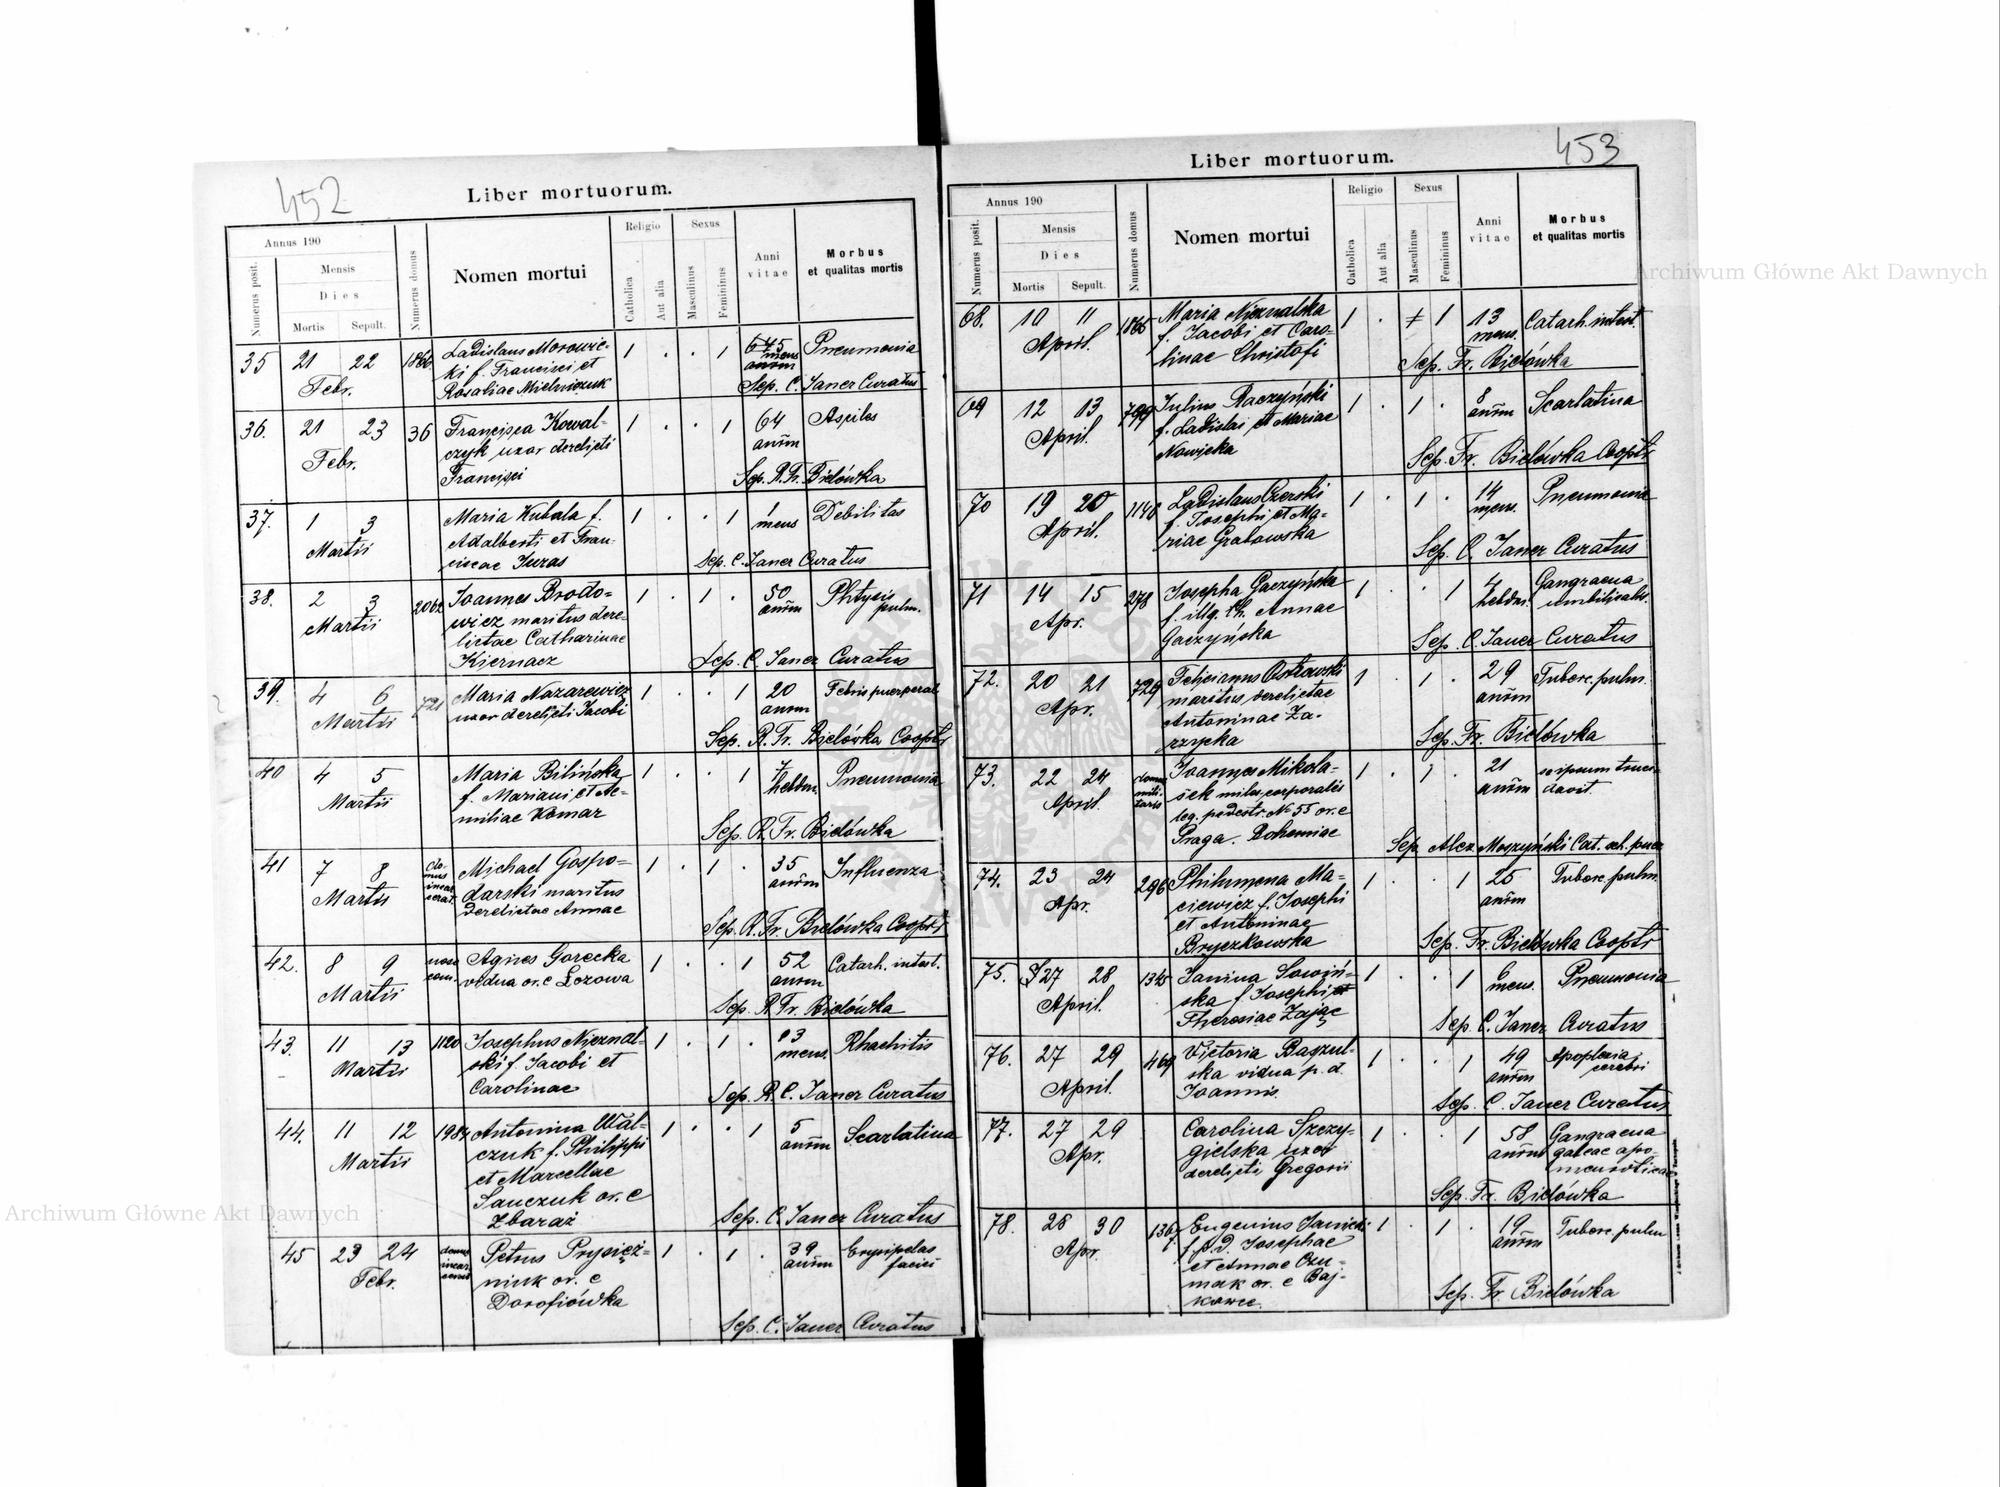 452
Liber mortuorum.
Annus 190
Numerus posit.
Mensis
Dies
Mortis Sepult.
Numerus domus
Nomen mortui
Religio
Catholica
Aut alia
Sexus
Masculinus
Femininus
Anni vitae
Morbus
et qualitas mortis
35 21 22 1866 Ladislaus Morowic-
Febr. ki f. Francisci et
Rosaliae Mielniczuk
1 . . 1 mens Pneumonia
Sep. C. Janer Curatus
36. 21 23 36 Francisca Kowal-
Febr. czyk uxor derelicti
Francisci
1 . . 1 64 annm
Sep. R. Fr. Bielówka
37. 1 3 Maria Kubala f.
Martii Adalberti et Fran-
ciscae Juras
1 . . 1 1 mens Debilitas
Sep. C. Janer Curatus
38. 2 3 2062 Joannes Brodo-
Martii wicz maritus dere-
lictae Catharinae
Kiernacz
1 . 1 . 50 annm Phtysis pulm.
Sep. C. Janer Curatus
39. 4 6 721 Maria Nazarewicz
Martii uxor derelicti Jacobi
1 . . 1 20 annm Febris puerperal
Sep. R. Fr. Bielówka Cooptr
40 4 5 Maria Bilińska
Martii f. Mariani et Ae-
miliae Komar
1 . . 1 7 hebdm. Pneumonia
Sep. R. Fr. Bielówka
41 7 8 do-
mus
incar
cerat.
Michael Gospo-
Martii darski maritus
derelictae Annae
1 . 1 . 35 annm Influenza
Sep. R. Fr. Bielówka Cooptr
42. 8 9 noso
com. Agnes Gorecka
Martii vidua or. e Łozowa
1 . . 1 52 annm Catarh. intest.
Sep. R. Fr. Bielówka
43. 11 13 1120 Josephus Nieznal-
Martii ski f. Jacobi et
Carolinae
1 . 1 . 13 mens. Rhachitis
Sep. R. C. Janer Curatus
44. 11 12 1984 Antonina Wal-
Martii czuk f. Philippi
et Marcellae
Sauczuk or. e
Zbaraż
1 . . 1 5 annm Scarlatina
Sep. C. Janer Curatus
45 23 24 domus
incar
cerat
Petrus Prysież-
Febr. niuk or. e
Dorofiówka
1 . 1 . 39 annm Erysipelas
faciei
Sep. C. Janer Curatus
453
Liber mortuorum.
Annus 190
Numerus posit.
Mensis
Dies
Mortis Sepult.
Numerus domus
Nomen mortui
Religio
Catholica
Aut alia
Sexus
Masculinus
Femininus
Anni vitae
Morbus
et qualitas mortis
68. 10 11 1865 Maria Nieznalska
April. f. Jacobi et Caro-
linae Christofi
1 . 1 13 mens. Catarh. intest.
Sep. Fr. Bielówka
69 12 13 799 Julius Raczyński
April. f. Ladislai et Mariae
Nowicka
1 . 1 . 8 annm Scarlatina
Sep. Fr. Bielówka Cooptr
70 19 20 1148 Ladislaus Czerski
April. f. Josephi et Ma-
riae Grabowska
1 . 1 . 14 mens. Pneumonia
Sep. C. Janer Curatus
71 14 15 278 Josepha Gaczyńska
Apr. f. illg. th. Annae
Gaczyńska
1 . . 1 4 hebdm. Gangraena
umbilicalis.
Sep. C. Janer Curatus
72. 20 21 729 Felicianus Ostrowski
Apr. maritus derelictae
Antoninae Za-
rzycka
1 . 1 . 29 annm Tuberc. pulm.
Sep. Fr. Bielówka
73. 22 24 domus
mili-
taris
Joannes Mikola-
April. šek miles corporalis
leg. pedestr. No 55 or. e
Praga. Bohemiae
1 . 1 . 21 annm se ipsum truci-
davit.
Sep. Alex Moszyński Cat. sch. puer
74. 23 24 296 Philumena Ma-
Apr. ciewicz f. Josephi
et Antoninae
Bryczkowska
1 . . 1 25 annm Tuberc. pulm.
Sep. Fr. Bielówka Cooptr
75. 27 28 1345 Janina Sowiń-
April. ska f. Josephi et
Theresiae Zając
1 . . 1 6 mens. Pneumonia
Sep. C. Janer Curatus
76. 27 29 469 Victoria Baszul-
April. ska vidua p. d.
Joannis.
1 . . 1 49 annm Apoplexia
cerebri
Sep. C. Janer Curatus
77. 27 29 Carolina Szczy-
Apr. gielska uxor
derelicti Gregorii
1 . . 1 58 annm Gangraena
galeae apo-
neuroticae
Sep. Fr. Bielówka
78. 28 30 Eugenius Janicki
Apr. f. p. d. Josephae
et Annae Czu-
mak or. e Baj-
kowce.
1 . 1 . 19 annm Tuberc. pulm
Sep. Fr. Bielówka
Archiwum Główne Akt Dawnych
Archiwum Główne Akt Dawnych